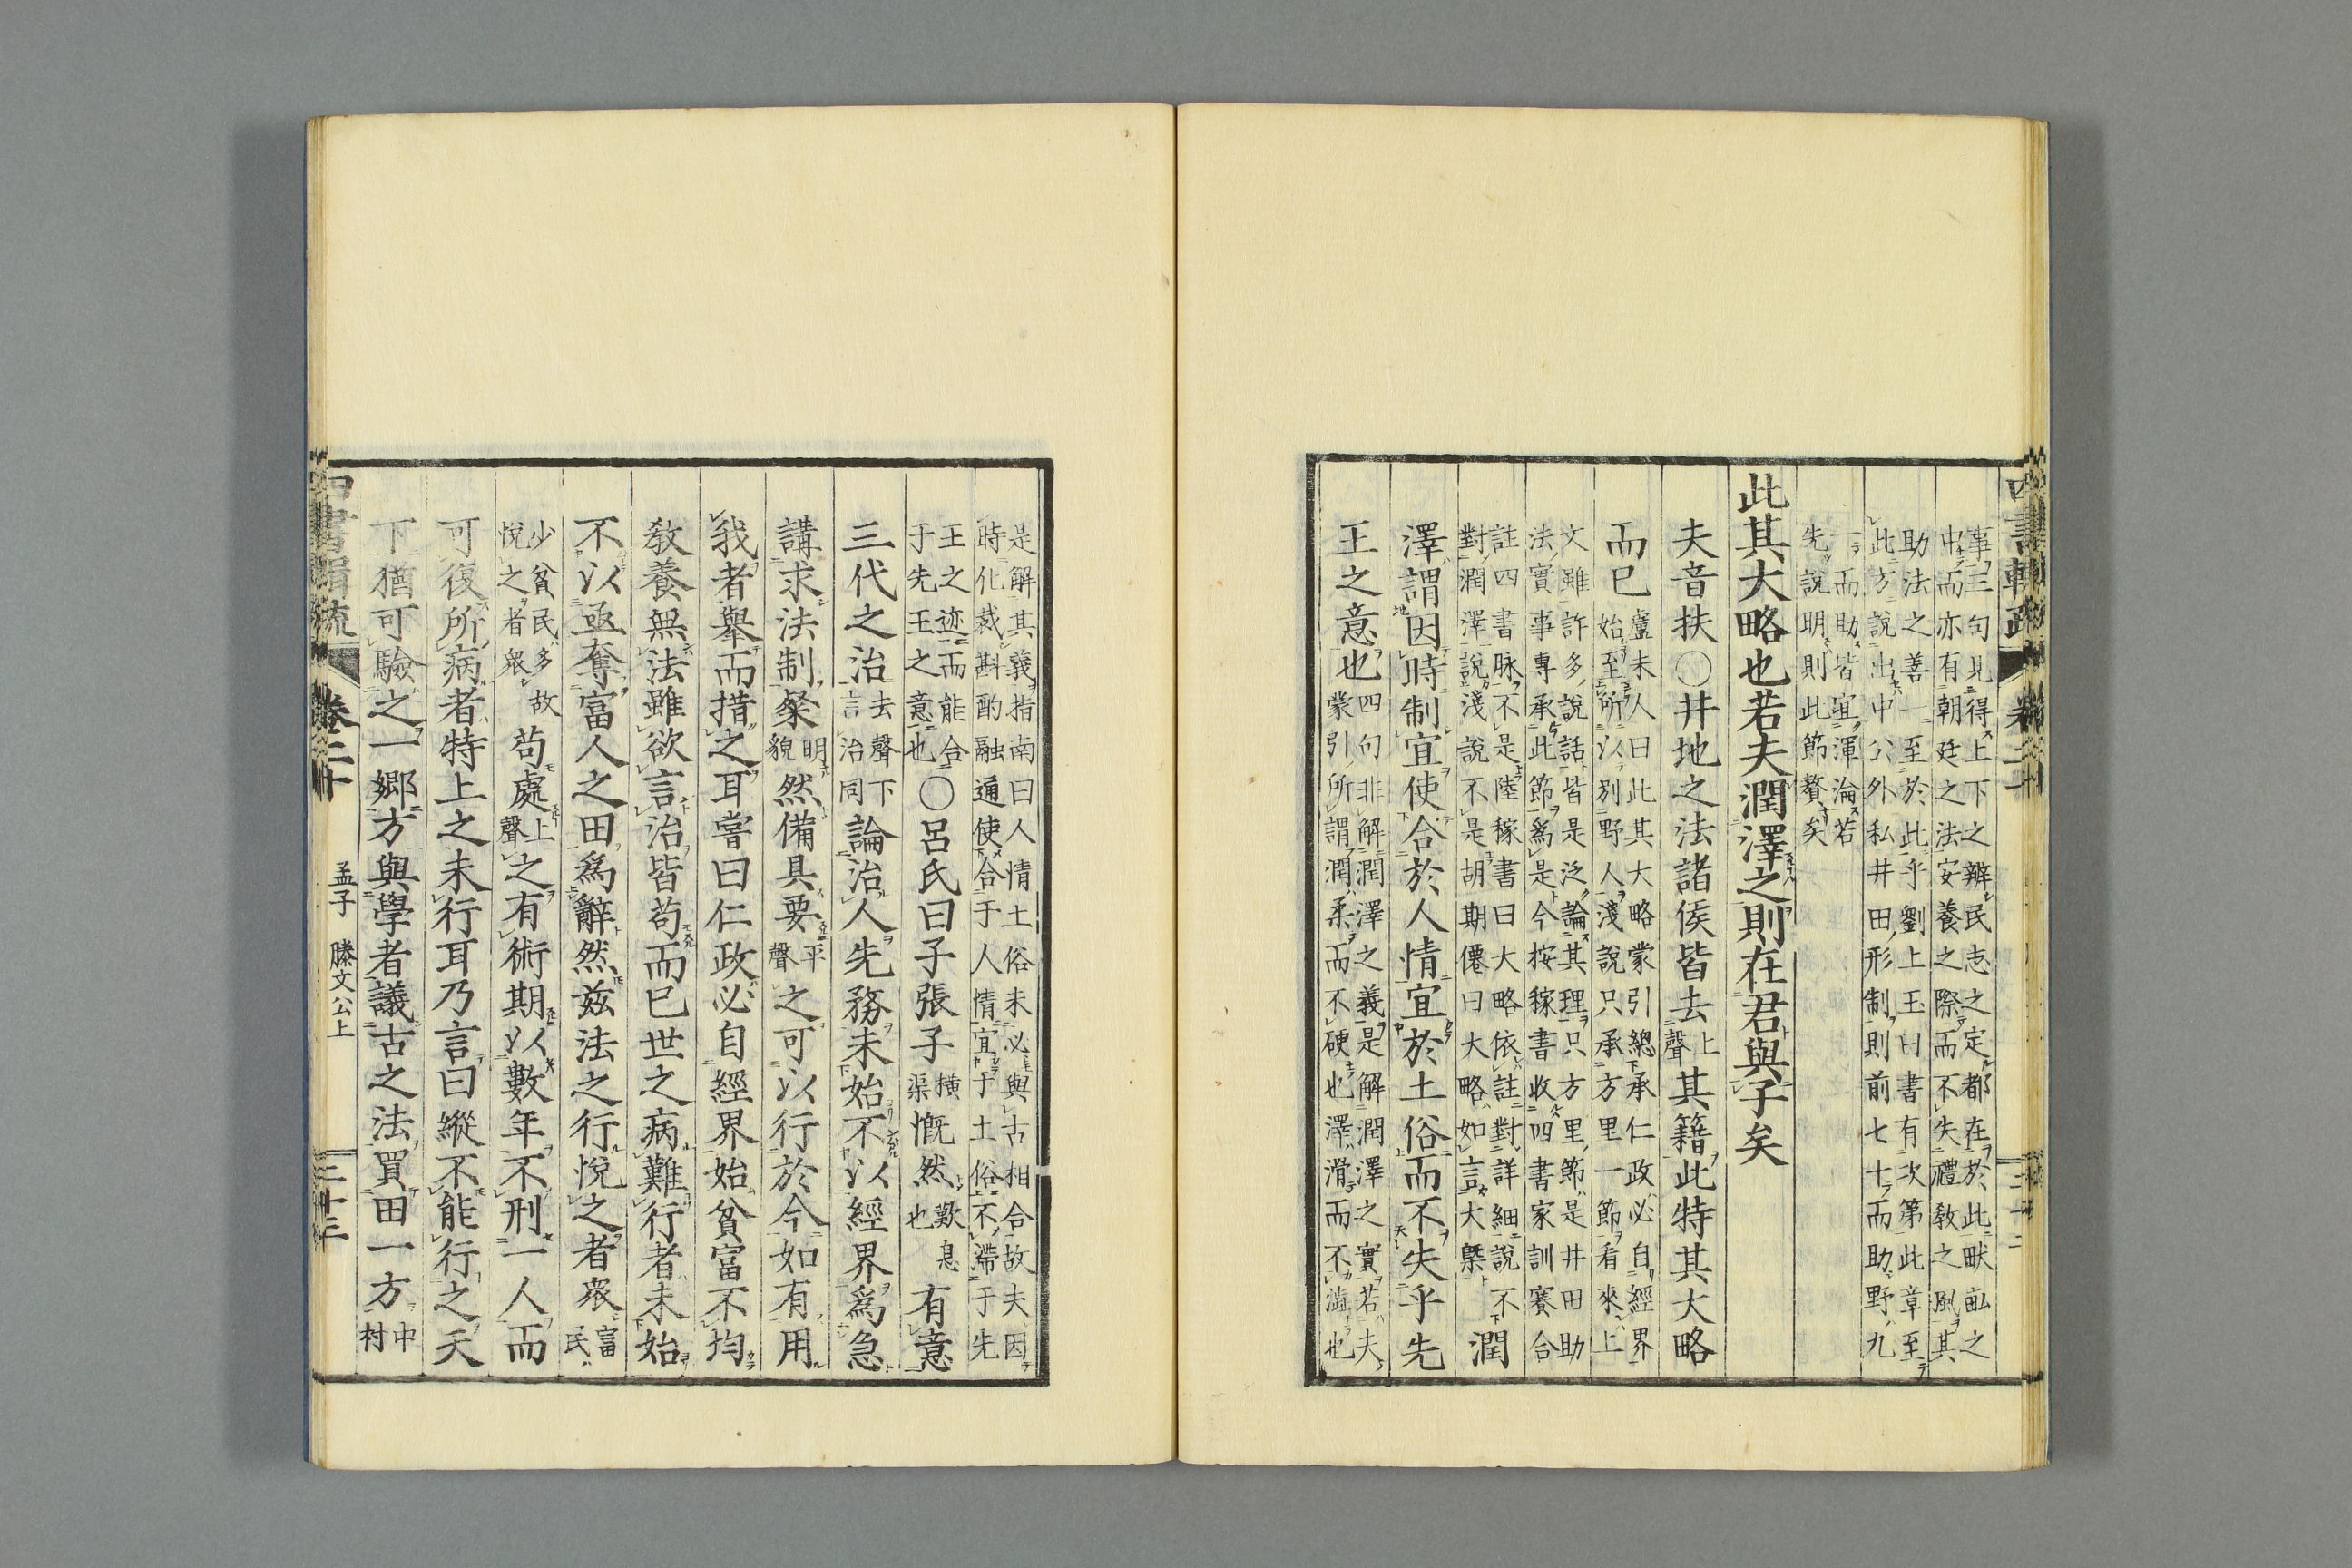 事三句見得上下之辨民志之定都在於此畎畝之
中而亦有朝廷之法安養之際而不失禮敎之風其
助法之善一至於此乎劉上玉曰書有次第此章至
此方說出中公外私井田形制則前七十而助野九
一而助皆宜渾淪若
先說明則此節贅矣
此其大略也若夫潤澤之則在君與子矣
夫音扶○井地之法諸侯皆去上聲其籍此特其大略
而已
盧未人曰此其大略蒙引總承仁政必自經界
始至所以別野人淺說只承方里一節看來上
文雖許多說話皆是泛論其理只方里節是井田助
法實事專承此節爲是今按稼書收四書家訓賽合
註四書脉不是陸稼書曰大略依註對詳細說不
對潤澤說淺說不是胡期僊曰大略如言大槩
潤
澤謂因時制宜使合於人情宜於土俗而不失乎先
王之意也
四句非解潤澤之義是解潤澤之實若夫
蒙引所謂潤柔而不硬也澤滑而不澁也
是解其義指南曰人情土俗未必與古相合故夫因
時化裁斟酌融通使合于人情宜于土俗不滯于先
王之迹而能合
于先王之意也
○呂氏曰子張子橫渠慨然歎息也有意
三代之治去聲下言治同論治人先務未始不以經界爲急
講求法制粲明貌然備具要平聲之可以行於今如有用
我者舉而措之耳嘗曰仁政必自經界始貧富不均
敎養無法雖欲言治皆苟而已世之病難行者未始
不以亟奪富人之田爲辭然玆法之行悅之者衆富民
少貧民多故
悅之者衆
苟處上聲之有術期以數年不刑一人而
可復所病者特上之未行耳乃言曰縱不能行之天
下猶可驗之一鄉方與學者議古之法買田一方中村
卷二十
孟子 滕文公上
二十三